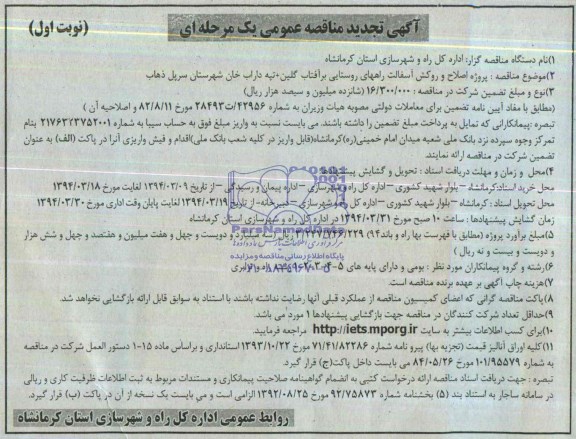 آگهی تجدید مناقصه عمومی یک مرحله ای
(نوبت اول)
۱)نام دستگاه مناقصه گزار: اداره کل راه و شهرسازی استان کرمانشاه
۲)موضوع مناقصه : پروژه اصلاح و روکش آسفالت راههای روستایی برآفتاب گلین+تپه داراب خان شهرستان سرپل ذهاب
۳)نوع و مبلغ تضمین شرکت در مناقصه : ۱۶/۳۰۰/۰۰۰ (شانزده میلیون و سیصد هزار ریال)
(مطابق با مفاد آیین نامه تضمین برای معاملات دولتی مصوبه هیات وزیران به شماره ۴۲۹۵۶/ت۲۸۴۹۳ مورخ ۸۲/۸/۱۱ و اصلاحیه آن )
تبصره :پیمانکارانی که تمایل به پرداخت مبلغ تضمین را داشته باشند. می بایست نسبت به واریز مبلغ فوق به حساب سیبا به شماره ۲۱۷۶۳۲۳۷۵۲۰۰۱ بنام
تمرکز وجوه سپرده نزد بانک ملی شعبه میدان امام خمینی(ره)کرمانشاه(قابل واریز در کلیه شعب بانک ملی)اقدام و فیش واریزی آنرا در پاکت (الف) به عنوان
تضمین شرکت در مناقصه ارائه نمایند.
۴)محل و زمان و مهلت دریافت اسناد : تحویل و گشایش پیشنهادها
محل خرید اسناد:کرمانشاه – بلوار شهید کشوری – اداره کل راه و شهرسازی – اداره پیمان و رسیدگی – از تاریخ ۱۳۹۴/۰۳/۰۹ لغایت مورخ ۱۳۹۴/۰۳/۱۸
محل تحویل اسناد : کرمانشاه – بلوار شهید کشوری – اداره کل راه و شهرسازی – دبیرخانه-از تاریخ ۱۳۹۴/۰۳/۱۹ لغایت پایان وقت اداری مورخ ۱۳۹۴/۰۳/۳۰
زمان گشایش پیشنهادها : ساعت ۱۰ صبح مورخ ۱۳۹۴/۰۳/۳۱ در اداره کل راه و شهرسازی استان کرمانشاه
۵)مبلغ برآورد پروژه (مطابق با فهرست بها راه و باند۹۴) ریال (سه میلیارد و دویست و چهل و هفت میلیون و هفتصد و چهل و شش هزار
و دویست و بیست و نه ریال )
۶)رشته و گروه پیمانکاران مورد نظر : بومی و دارای پایه های ۵-۴-۳-۲-۱ رشته راه و ترابری
۷)هزینه چاپ آگهی بر عهده برنده مناقصه است.
۸)پاکت مناقصه گرانی که اعضای کمیسیون مناقصه از عملکرد قبلی آنها رضایت نداشته باشند با استناد به سوابق قابل ارائه بازگشایی نخواهد شد.
۹)حداقل تعداد شرکت کنندگان در مناقصه جهت بازگشایی پیشنهادها ۱ مورد می باشد.
۱۰)برای کسب اطلاعات بیشتر به سایت http://iets.mporg.ir مراجعه فرمایید.
۱۱)کلیه اوراق آنالیز قیمت (تجزیه بها) پیرو نامه شماره ۷۱/۴۱/۸۲۳۸۶ مورخ ۱۳۹۳/۱۰/۲۲ استانداری و براساس ماده ۱۵-۱ دستور العمل شرکت در مناقصه
به شماره ۱۰۱/۹۵۵۷۹ مورخ ۸۴/۰۵/۲۶ می بایست داخل پاکت(ج) قرار گیرد.
تبصره : جهت دریافت اسناد مناقصه ارائه درخواست کتبی به انضمام گواهینامه صلاحیت پیمانکاری و مستندات مربوط به ثبت اطلاعات ظرفیت کاری و ریالی
در سامانه ساجار به استناد بند (۵) بخشنامه شماره ۹۲/۷۵۸۷۳ مورخ ۱۳۹۲/۰۸/۲۵ الزامی است و می بایست یک نسخه از آن در پاکت (ب) قرار گیرد.
روابط عمومی اداره کل راه و شهرسازی استان کرمانشاه
ParsNamadData
پایگاه اطلاع رسانی مناقصه و مزایده